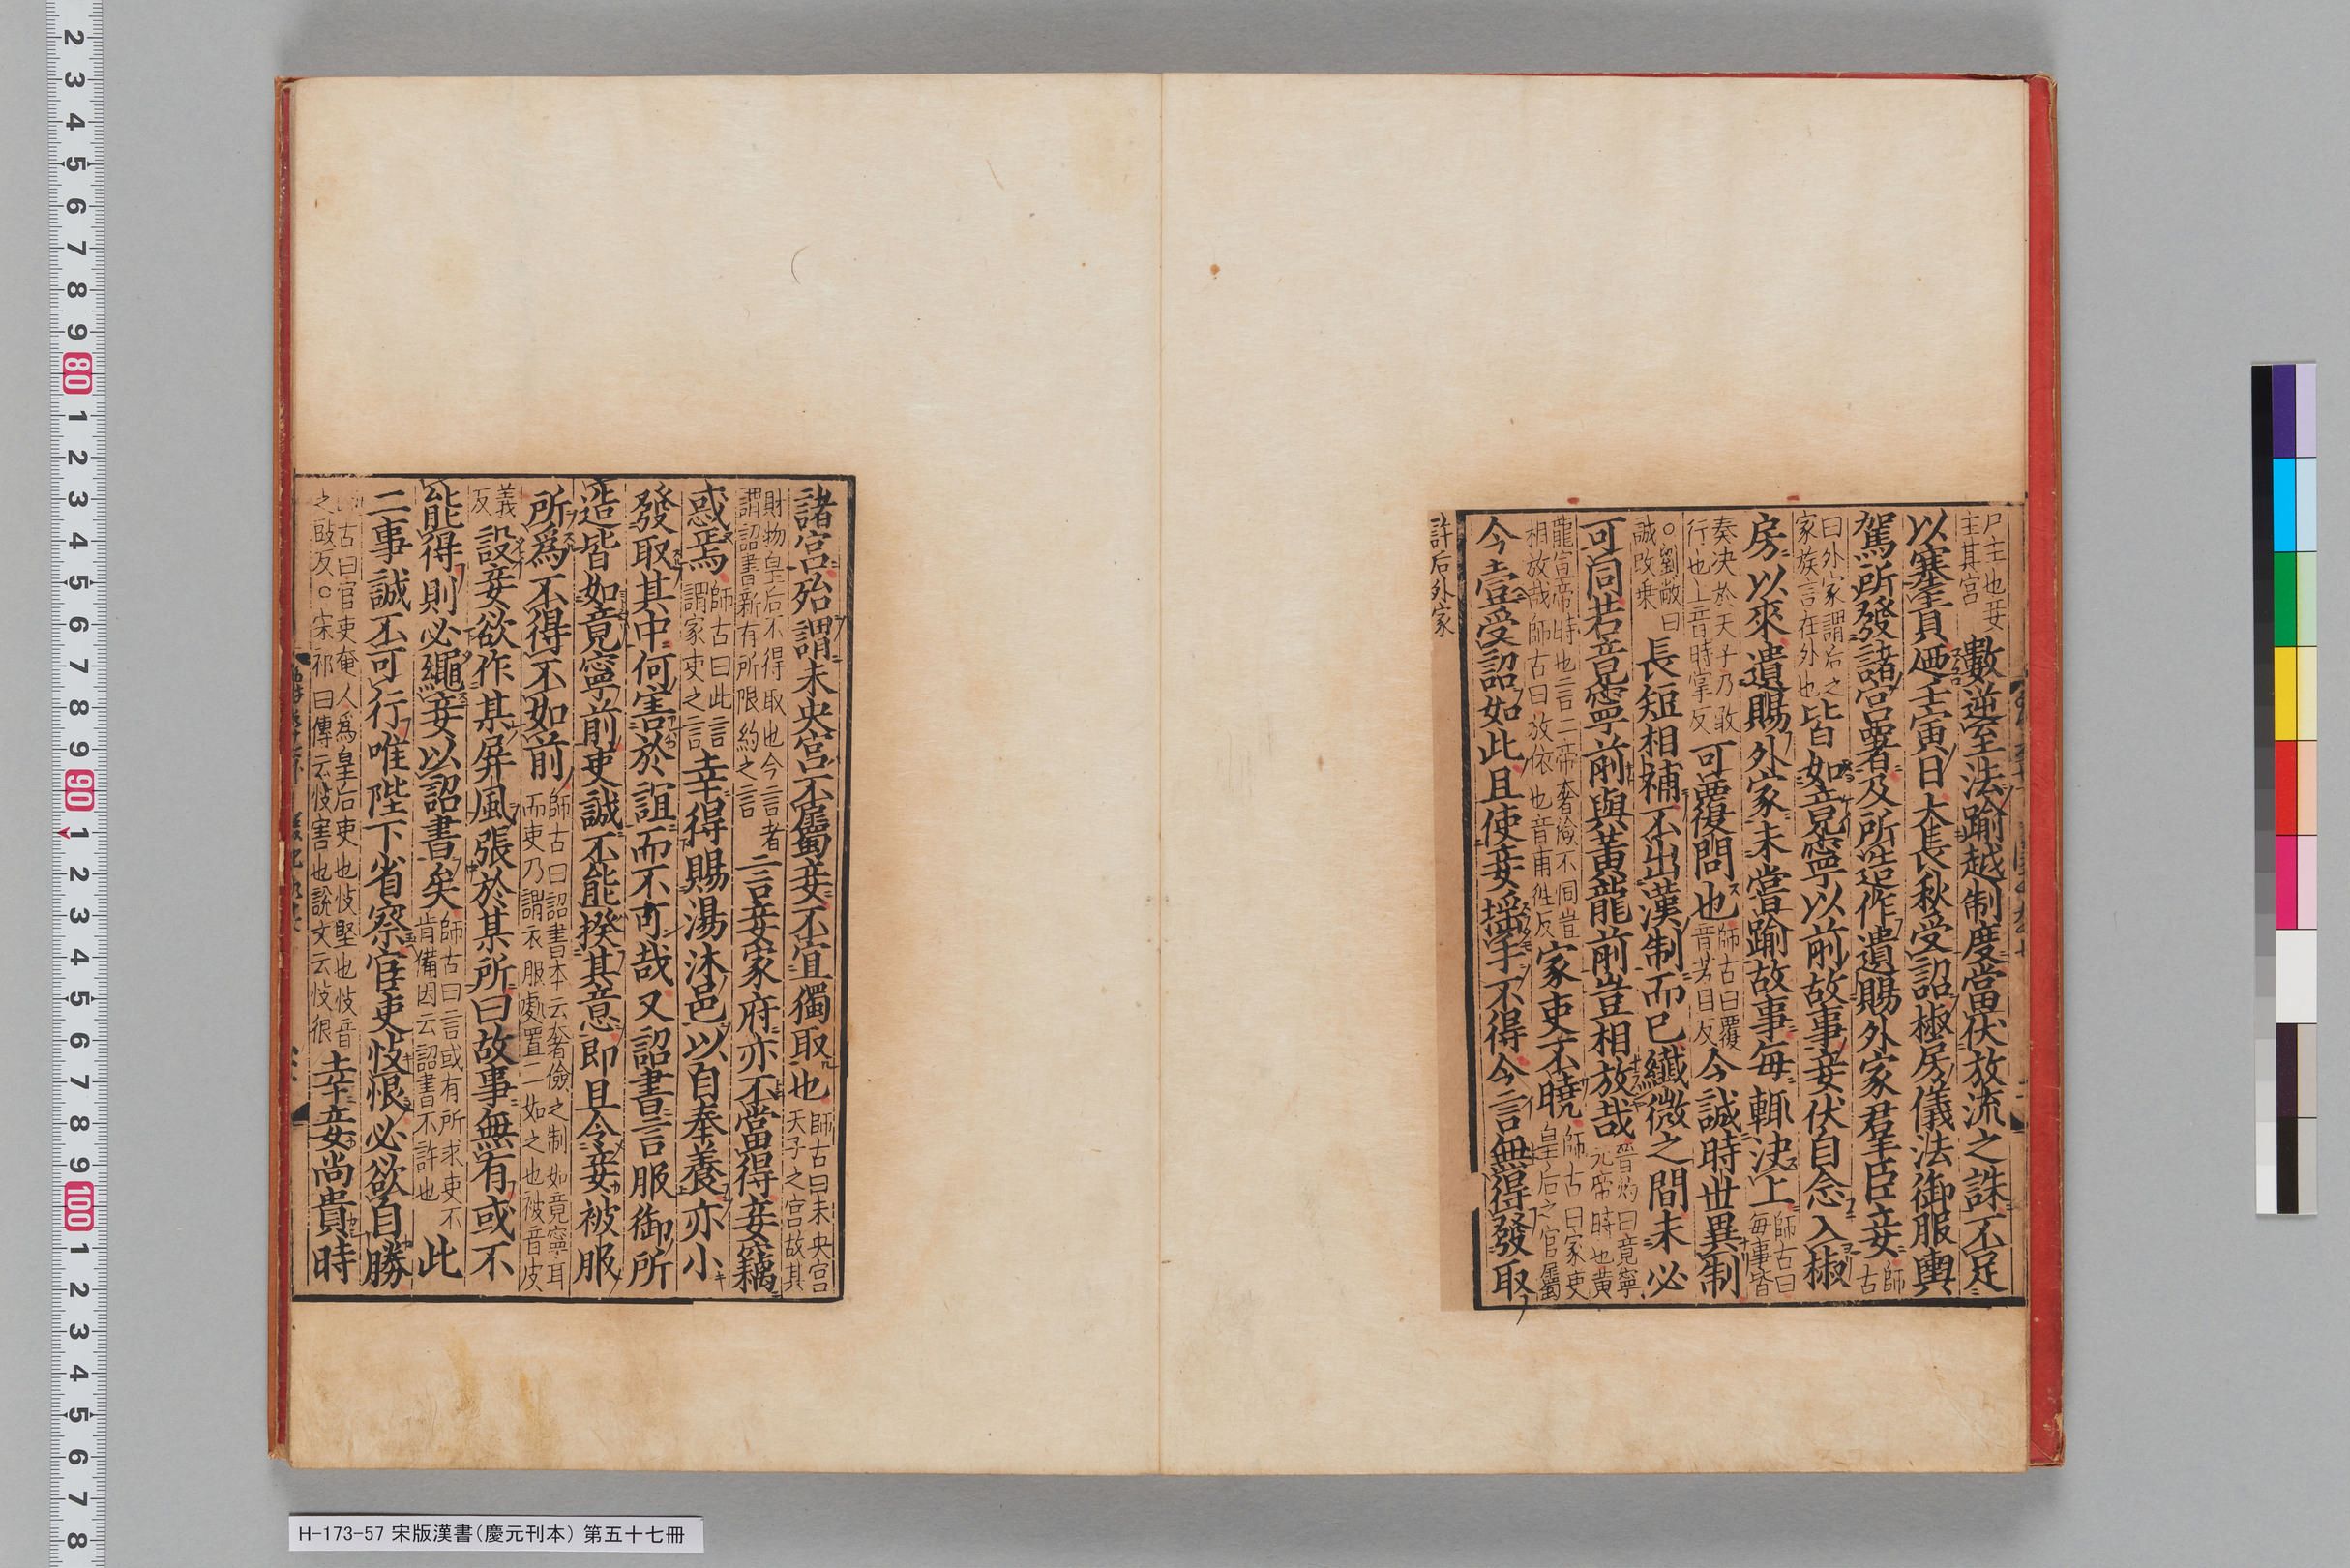 尸主也妾主其宫數逆至法踰越制度當伏放流之誅不足
以塞責廼壬寅日大長秋受詔椒房儀法御服輿
駕所發諸宫署及所造作遺賜外家羣臣妾師古
曰外家謂后之家族言在外也皆如竟寧以前故事妾伏自念入椒
房以來遺賜外家未嘗踰故事每輒決上師古曰每事皆
奏決於天子乃敢行也上音時掌反可覆問也師古曰覆音芳目反今誠時世異制
○劉敞曰誠改乗長短相補不出漢制而已纖微之間未必
可同若竟寧前與黃龍前豈相放哉晉灼曰竟寧元帝時也黄
龍宣帝時也言二帝奢儉不同豈相放哉師古曰放依也音甫徃反家吏不曉師古曰家吏皇后之官屬
今壹受詔如此且使妾摇手不得今言無得發取
許后外家
諸宫殆謂未央宫不屬妾不宜獨取也師古曰未央宫天子之宫故其
財物皇后不得取也今言者謂詔書新有所限約之言言妾家府亦不當得妾竊
惑焉師古曰此言謂家吏之言幸得賜湯沐邑以自奉養亦小
發取其中何害於誼而不可哉又詔書言服御所
造皆如竟寧前吏誠不能揆其意即且令妾被服
所爲不得不如前師古曰詔書本云奢儉之制如竟寧耳而吏乃謂衣服處置一如之也被音皮
義反設妾欲作某屏風張於某所曰故事無有或不
能得則必繩妾以詔書矣師古曰言或有所求吏不肯備因云詔書不許也此
二事誠不可行唯陛下省察宦吏忮佷必欲自勝
師古曰官吏奄人爲皇后吏也忮堅也忮音之豉反○宋祁曰傳云忮害也說文云忮很幸妾尚貴時
H-173-57 宋版漢書(慶元刊本) 第五十七冊